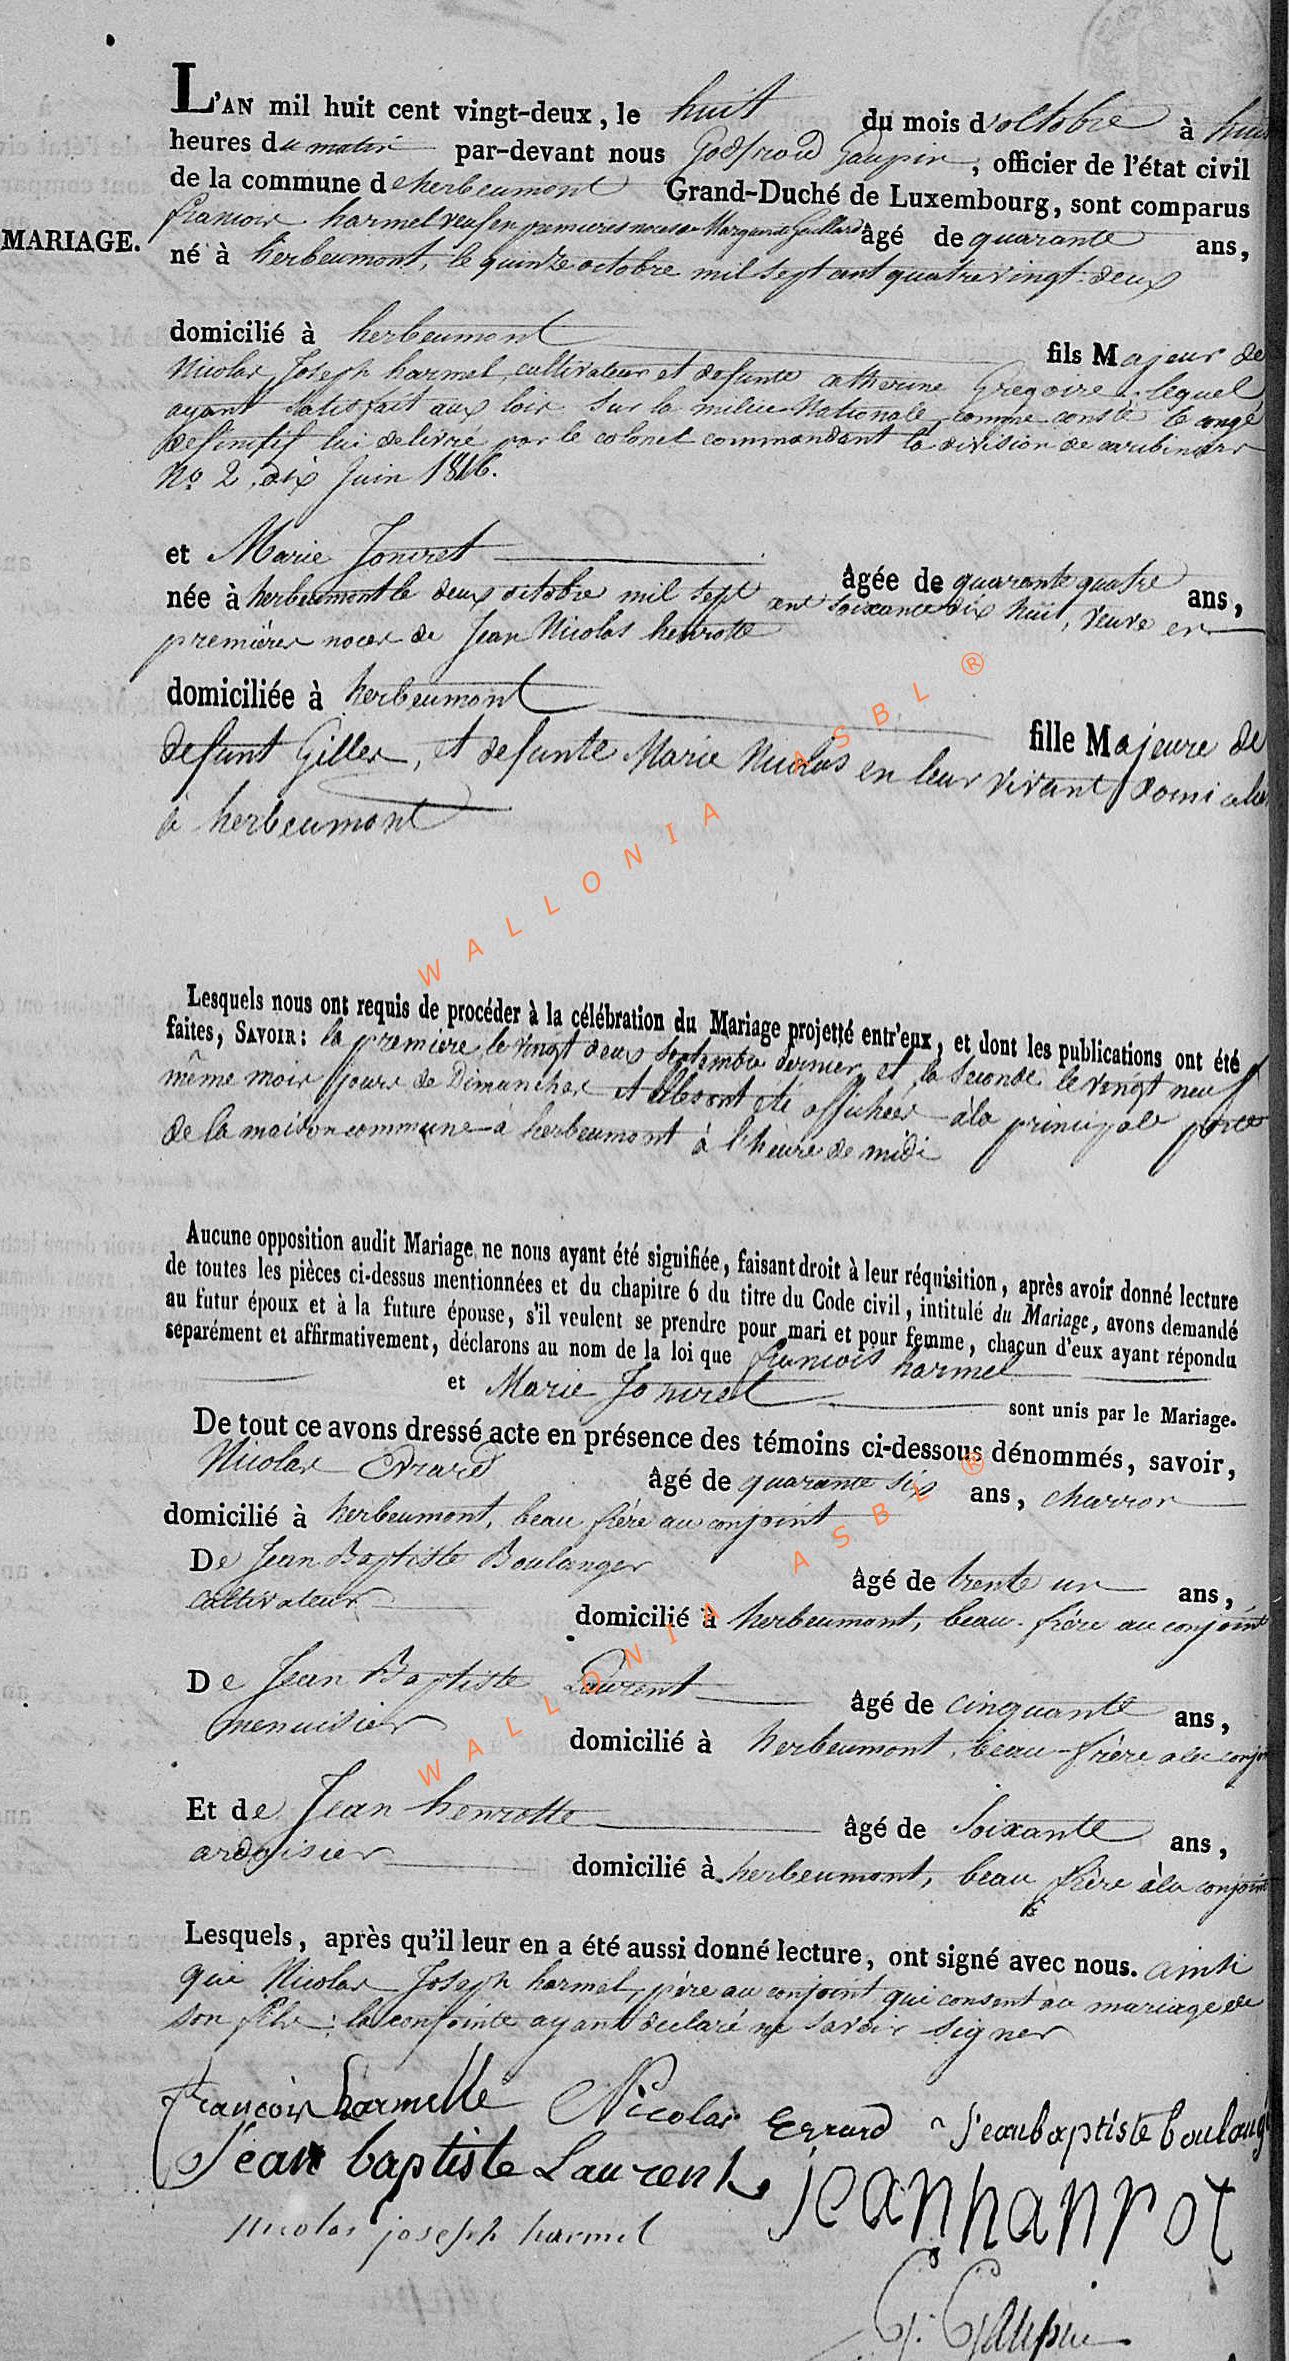 L'AN mil huit cent vingt-deux, le huit du mois d'octobre à huit
heures du matin par-devant nous Godfroid Gaupin, officier de l'état civil
de la commune d'herbeumont Grand-Duché de Luxembourg, sont comparus
MARIAGE.
francois harmel veuf en premieres noces de Marguerite Gaillard âgé de quarante ans,
né à herbeumont, le quinze octobre mil sept cent quatre vingt-deux
domicilié à herbeumont fils Majeur de
Nicolas Joseph harmel, cultivateur et defunte catherine Gregoire, lequel
ayant satisfait aux lois sur la milice Nationale comme conste le congé
definitif lui delivré par le colonel commandant la division de carabiniers
No 2, dix Juin 1816.
et Marie Joniret âgée de quarante quatre ans,
née à herbeumont le deux octobre mil sept cent soixante dix huit, veuve en
premières noces de Jean Nicolas henrotte
domiciliée à herbeumont fille Majeure de
defunt Gilles, et defunte Marie Nicolas en leur vivant domiciliés
à herbeumont
WALLONIA ASBL ®
Lesquels nous ont requis de procéder à la célébration du Mariage projetté entr'eux, et dont les publications ont été
faites, SAVOIR: la premiere le vingt deux septembre dernier et la seconde le vingt neuf
même mois jours de Dimanches et elles ont été affichées à la principale porte
de la maison commune à herbeumont à l'heure de midi
Aucune opposition audit Mariage ne nous ayant été signifiée, faisant droit à leur réquisition, après avoir donné lecture
de toutes les pièces ci-dessus mentionnées et du chapitre 6 du titre du Code civil, intitulé du Mariage, avons demandé
au futur époux et à la future épouse, s'il veulent se prendre pour mari et pour femme, chacun d'eux ayant répondu
séparément et affirmativement, déclarons au nom de la loi que francois harmel
et Marie Joniret sont unis par le Mariage.
De tout ce avons dressé acte en présence des témoins ci-dessous dénommés, savoir,
Nicolas Evrard âgé de quarante six ans, charron
domicilié à herbeumont, beau frère au conjoint
De Jean Baptiste Boulanger âgé de trente un ans,
cultivateur domicilié à herbeumont, beau-frère au conjoint
De Jean Baptiste Laurent âgé de cinquante ans,
menuisier domicilié à herbeumont, beau-frère à la conjointe
Et de Jean henrotte âgé de soixante ans,
ardoisier domicilié à herbeumont, beau frère à la conjointe
WALLONIA ASBL ®
Lesquels, après qu'il leur en a été aussi donné lecture, ont signé avec nous. ainsi
que Nicolas Joseph harmel, père au conjoint qui consent au mariage de
son fils; la conjointe ayant declaré ne savoir signer
francois harmelle Nicolas Evrard Jeanbaptiste boulang
Jean baptiste Laurent jean hanrot
nicolas joseph harmel
G. Gaupin